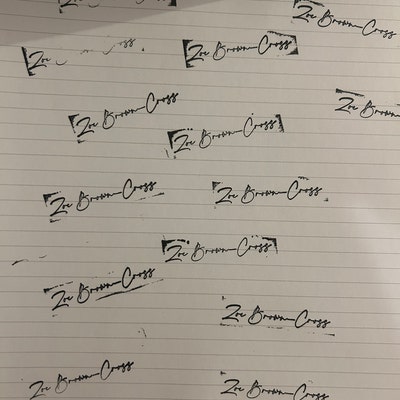 Zoe Brown-Cross
Zoe Cross
Zoe Brown-Cross
Zoe Brown-Cross
Zoe Brown-Cross
Zoe Brown-Cross
Zoe Brown-Cross
Zoe Brown-Cross
Zoe Brown-Cross
Zoe Brown-Cross
Zoe Brown-Cross
Zoe Brown-Cross
Zoe Brown-Cross